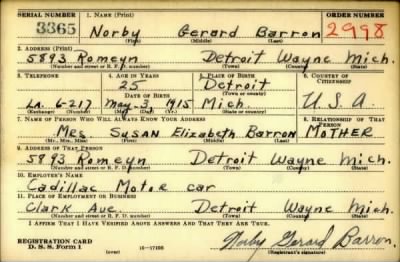 SERIAL NUMBER 1. NAME (Print) ORDER NUMBER
3365 Norby Gerard Barron 2998
(First) (Middle) (Last)
2. ADDRESS (Print)
5893 Romeyn Detroit Wayne Mich.
(Number and street or R. F. D. number) (Town) (County) (State)
3. TELEPHONE 4. AGE IN YEARS 5. PLACE OF BIRTH 6. COUNTRY OF CITIZENSHIP
25 Detroit
DATE OF BIRTH (Town or county)
LA. 6-217 May-3, 1915 Mich. U.S.A.
(Exchange) (Number) (Mo.) (Day) (Yr.) (State or country)
7. NAME OF PERSON WHO WILL ALWAYS KNOW YOUR ADDRESS 8. RELATIONSHIP OF THAT PERSON
Mrs. Susan Elizabeth Barron MOTHER
(Mr., Mrs., Miss) (First) (Middle) (Last)
9. ADDRESS OF THAT PERSON
5893 Romeyn Detroit Wayne Mich.
(Number and street or R. F. D. number) (Town) (County) (State)
10. EMPLOYER'S NAME
Cadillac Motor car
11. PLACE OF EMPLOYMENT OR BUSINESS
Clark Ave. Detroit Wayne Mich.
(Number and street or R. F. D. number) (Town) (County) (State)
I AFFIRM THAT I HAVE VERIFIED ABOVE ANSWERS AND THAT THEY ARE TRUE.
REGISTRATION CARD
D. S. S. Form 1 (over) 16-17105 Norby Gerard Barron.
(Registrant's signature)